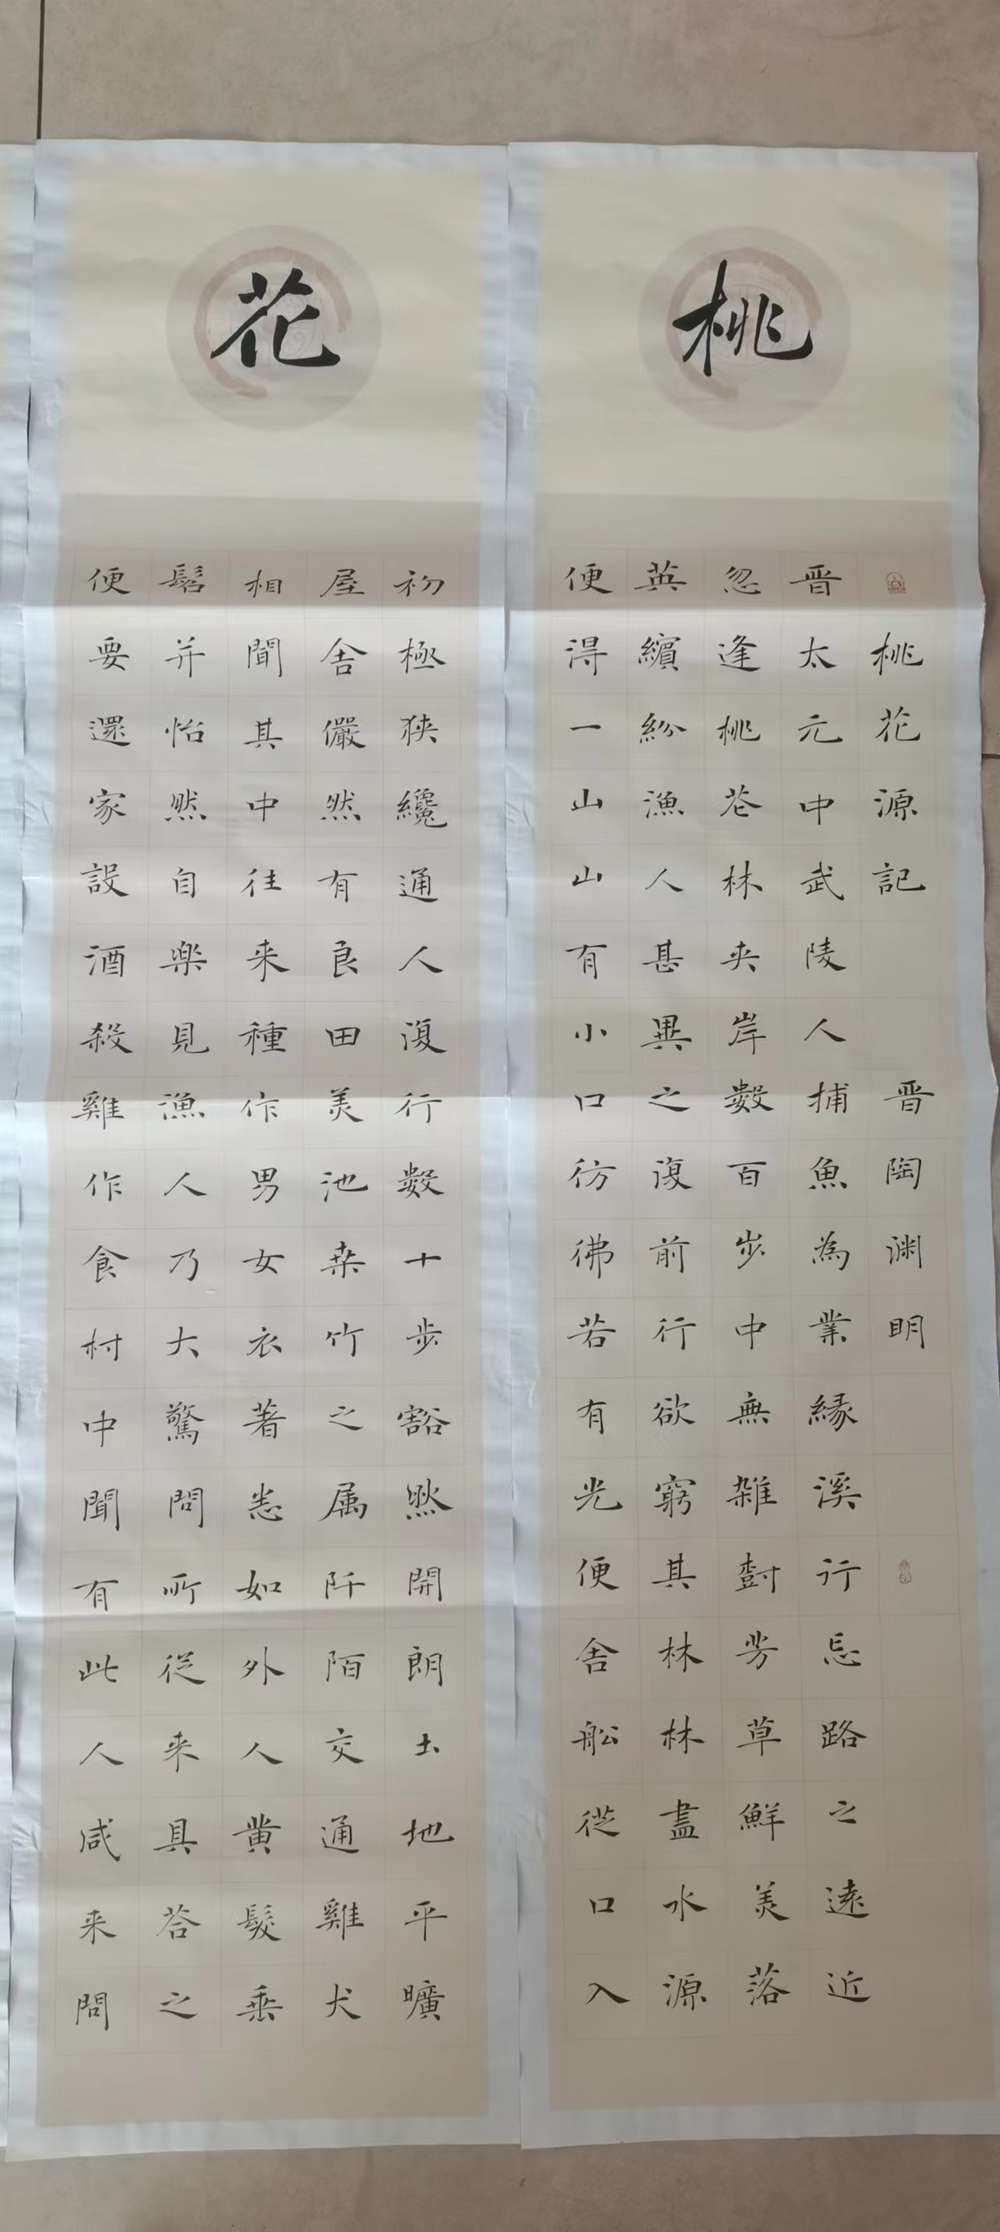 桃
桃花源記 晋陶渊明
晋太元中武陵人捕魚為業縁溪行忘路之遠近
忽逢桃花林夹岸數百步中無雜樹芳草鮮美落
英繽紛漁人甚異之復前行欲窮其林林盡水源
便得一山山有小口彷彿若有光便舍船從口入
花
初極狭纔通人復行數十步豁然開朗土地平曠
屋舍儼然有良田美池桒竹之属阡陌交通雞犬
相聞其中往来種作男女衣著悉如外人黄髮垂
髫并怡然自楽見漁人乃大驚問所從来具荅之
便要還家設酒殺雞作食村中聞有此人咸来問